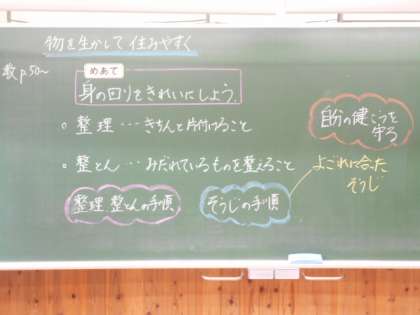 物を生かして 住みやすく
教p.50〜
めあて
身の回りをきれいにしよう。
○ 整理 … きちんと片付けること
自分の健こうを
守る
○ 整とん … みだれているものを整えること
よごれに合った
そうじ
整理 整とんの手順
そうじの手順